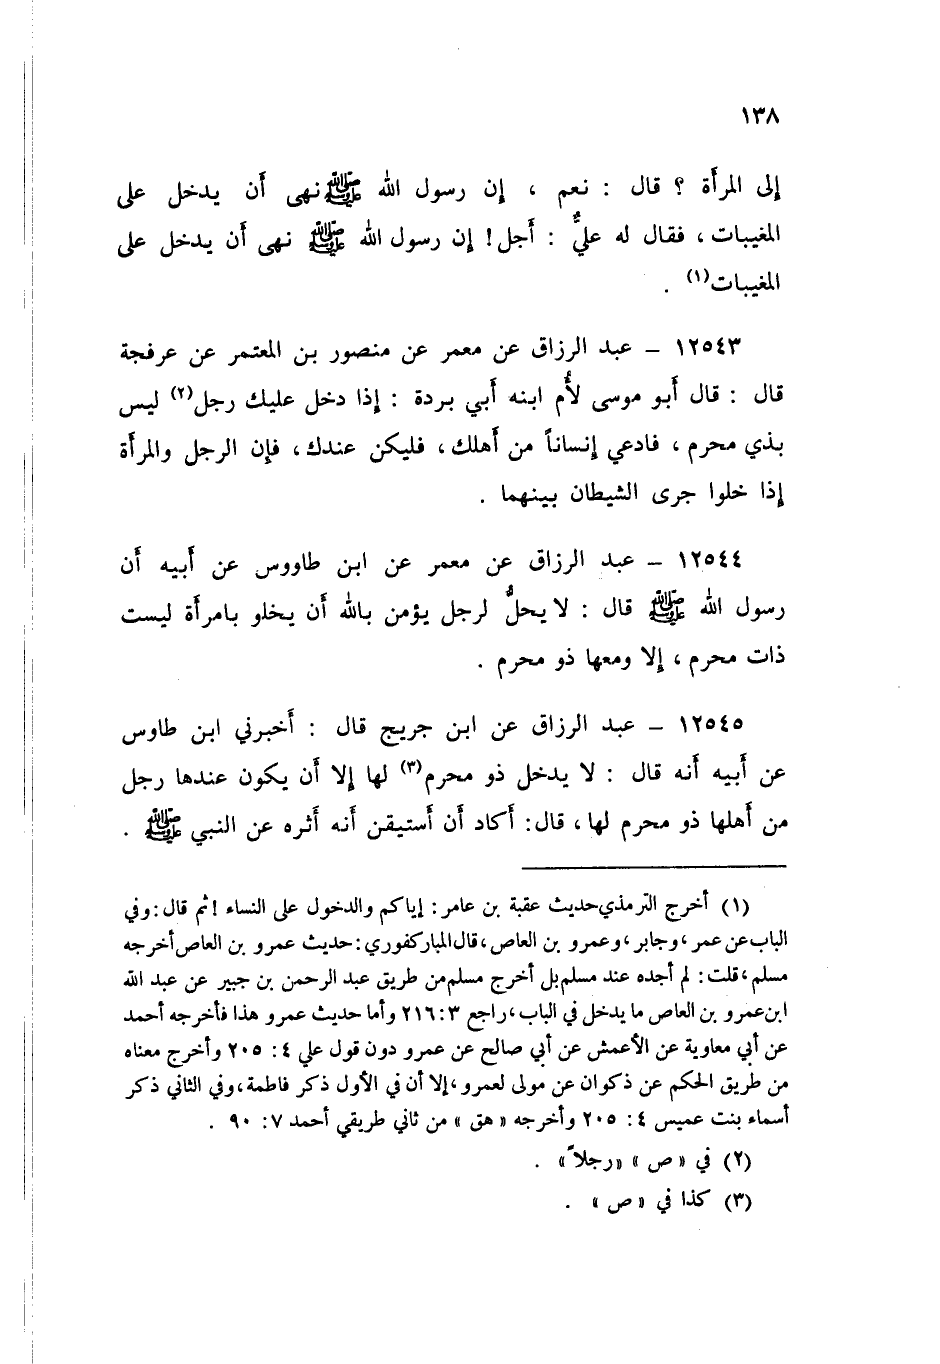 ١٣٨
إلى المرأة ؟ قال : نعم ، إن رسول الله ﷺ نهى أن يدخل على
المغيبات ، فقال له عليٌّ : أجل ! إن رسول الله ﷺ نهى أن يدخل على
المغيبات(١) .
١٢٥٤٣ – عبد الرزاق عن معمر عن منصور بن المعتمر عن عرفجة
قال : قال أبو موسى لأُم ابنه أبي بردة : إذا دخل عليك رجل(٢) ليس
بذي محرم ، فادعي إنساناً من أهلك ، فليكن عندك ، فإن الرجل والمرأة
إذا خلوا جرى الشيطان بينهما .
١٢٥٤٤ – عبد الرزاق عن معمر عن ابن طاووس عن أبيه أن
رسول الله ﷺ قال : لا يحلُّ لرجل يؤمن بالله أن يخلو بامرأة ليست
ذات محرم ، إلا ومعها ذو محرم .
١٢٥٤٥ – عبد الرزاق عن ابن جريج قال : أخبرني ابن طاوس
عن أبيه أنه قال : لا يدخل ذو محرم(٣) لها إلا أن يكون عندها رجل
من أهلها ذو محرم لها ، قال : أكاد أن أستيقن أنه أثره عن النبي ﷺ .
(١) أخرج الترمذي حديث عقبة بن عامر : إياكم والدخول على النساء ! ثم قال : وفي
الباب عن عمر ، وجابر ، وعمرو بن العاص ، قال المباركفوري : حديث عمرو بن العاص أخرجه
مسلم ، قلت : لم أجده عند مسلم بل أخرج مسلم من طريق عبد الرحمن بن جبير عن عبد الله
ابن عمرو بن العاص ما يدخل في الباب ، راجع ٣ : ٢١٦ وأما حديث عمرو هذا فأخرجه أحمد
عن أبي معاوية عن الأعمش عن أبي صالح عن عمرو دون قول علي ٤ : ٢٠٥ وأخرج معناه
من طريق الحكم عن ذكوان عن مولى لعمرو ، إلا أن في الأول ذكر فاطمة ، وفي الثاني ذكر
أسماء بنت عميس ٤ : ٢٠٥ وأخرجه « هق » من ثاني طريقي أحمد ٧ : ٩٠ .
(٢) في « ص » «رجلاً» .
(٣) كذا في « ص » .